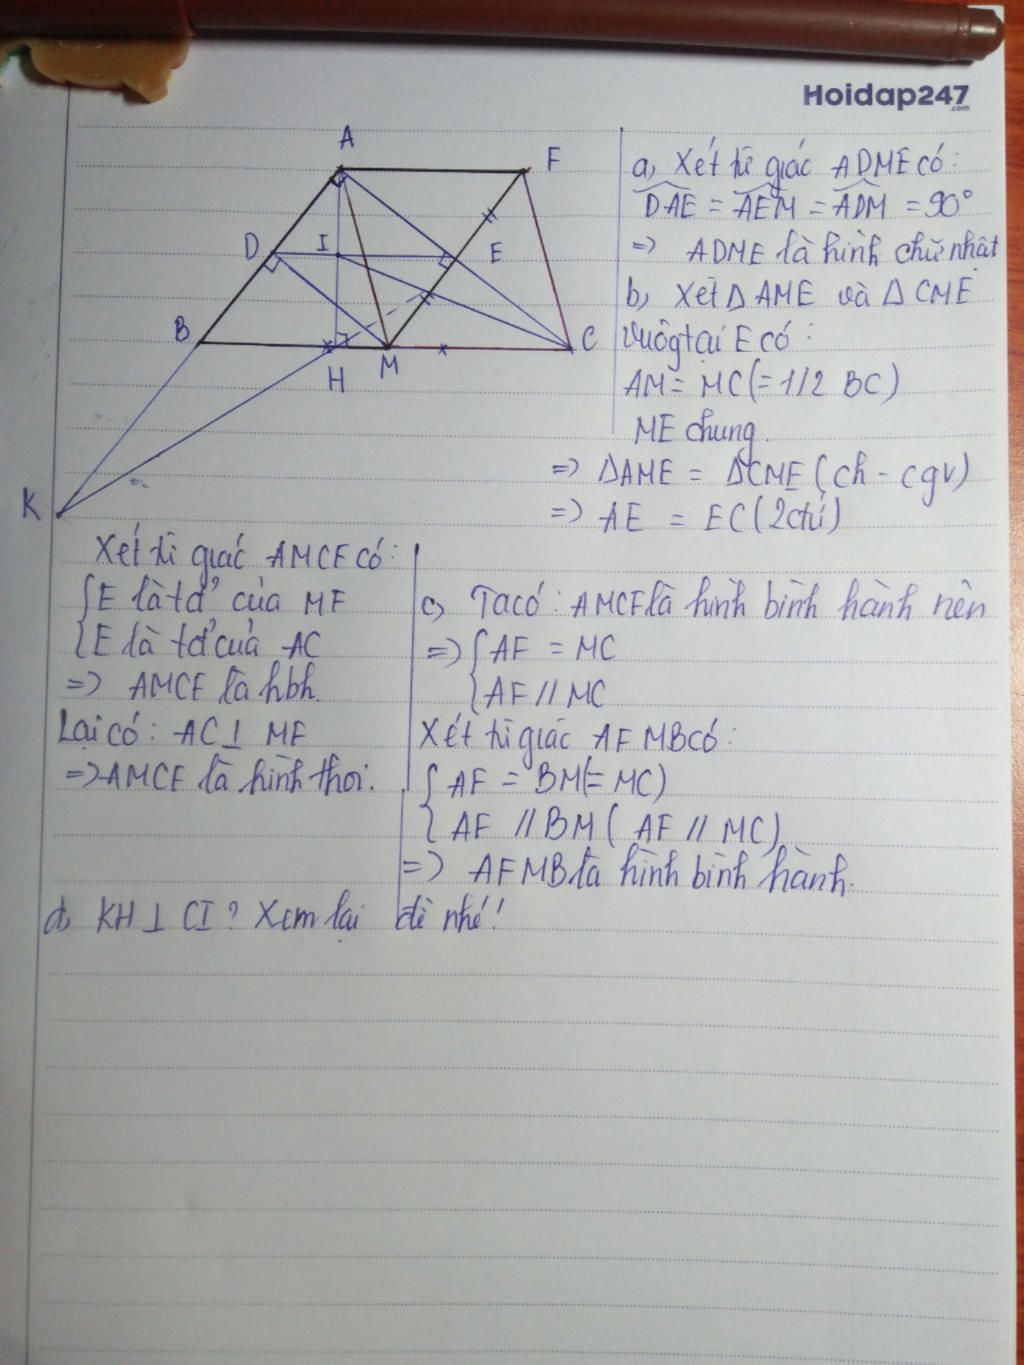 Hoidap247
.com
A
F
D
I
E
B
C
H
M
K
a, Xét tứ giác ADME có:
DAE = AEM = ADM = 90°
=> ADME là hình chữ nhật
b, Xét Δ AME và Δ CME
vuôg tại E có:
AM = MC (= 1/2 BC)
ME chung
=> ΔAME = ΔCME (ch - cgv)
=> AE = EC (2ctứ)
Xét tứ giác AMCF có:
E là tđ' của MF
E là tđ' của AC
=> AMCF là hbh.
Lại có: AC ⊥ MF
=> AMCF là hình thoi.
c, Ta có: AMCF là hình bình hành nên
=> AF = MC
AF // MC
Xét tứ giác AFMB có:
AF = BM (= MC)
AF // BM ( AF // MC)
=> AFMB là hình bình hành.
d, KH ⊥ CI? Xem lại đề nhé!